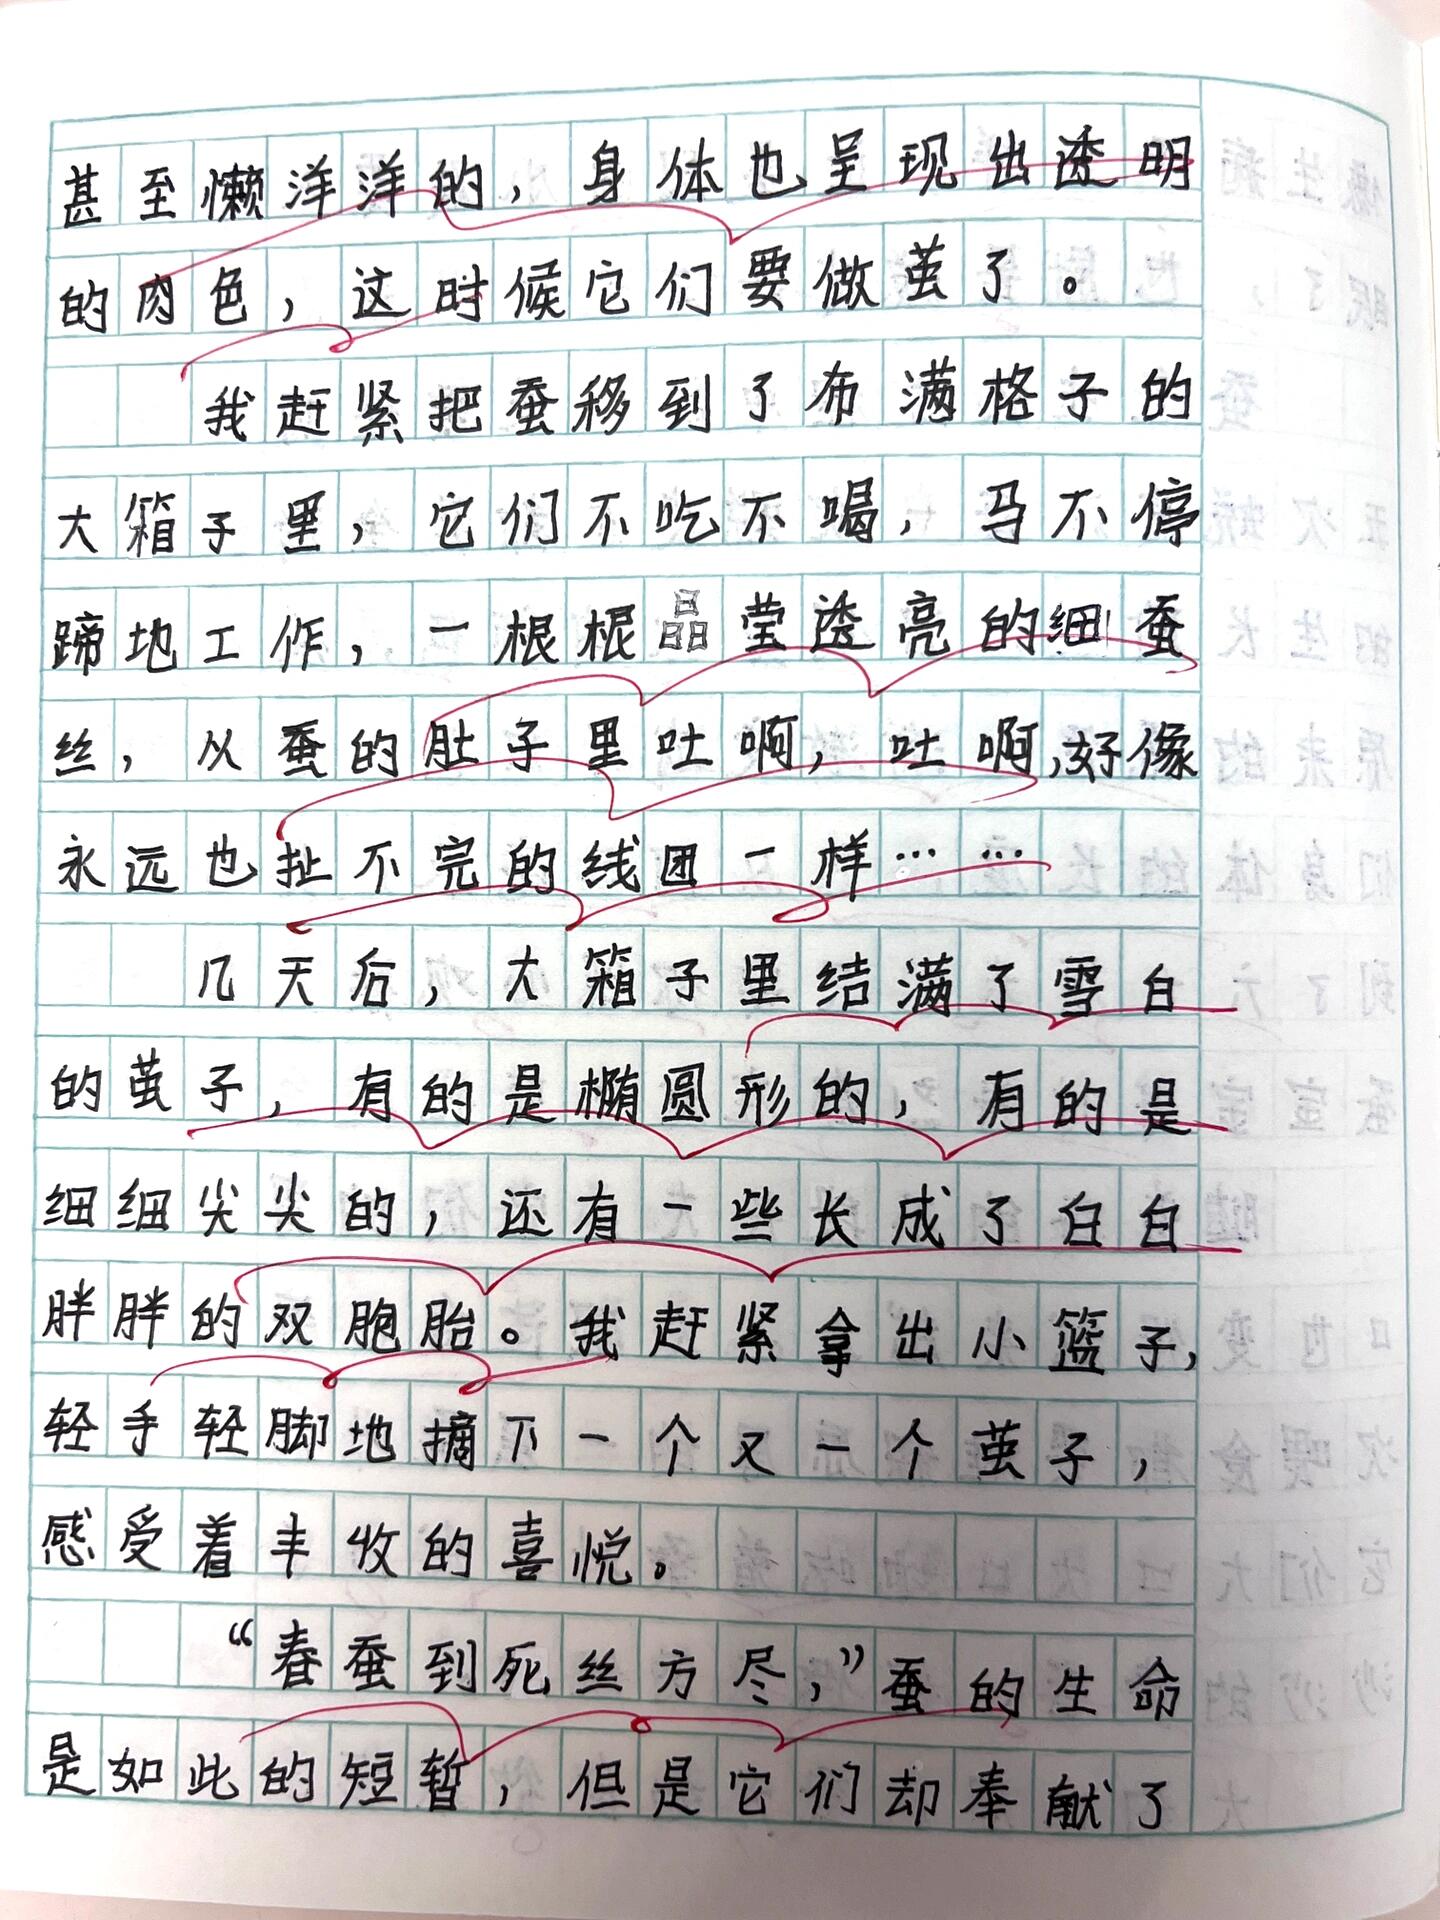 甚至懒洋洋的，身体也呈现出透明
的肉色，这时候它们要做茧了。
我赶紧把蚕移到了布满格子的
大箱子里，它们不吃不喝，马不停
蹄地工作，一根根晶莹透亮的细蚕
丝，从蚕的肚子里吐啊，吐啊，好像
永远也扯不完的线团一样……
几天后，大箱子里结满了雪白
的茧子，有的是椭圆形的，有的是
细细尖尖的，还有一些长成了白白
胖胖的双胞胎。我赶紧拿出小篮子，
轻手轻脚地摘下一个又一个茧子，
感受着丰收的喜悦。
“春蚕到死丝方尽，”蚕的生命
是如此的短暂，但是它们却奉献了